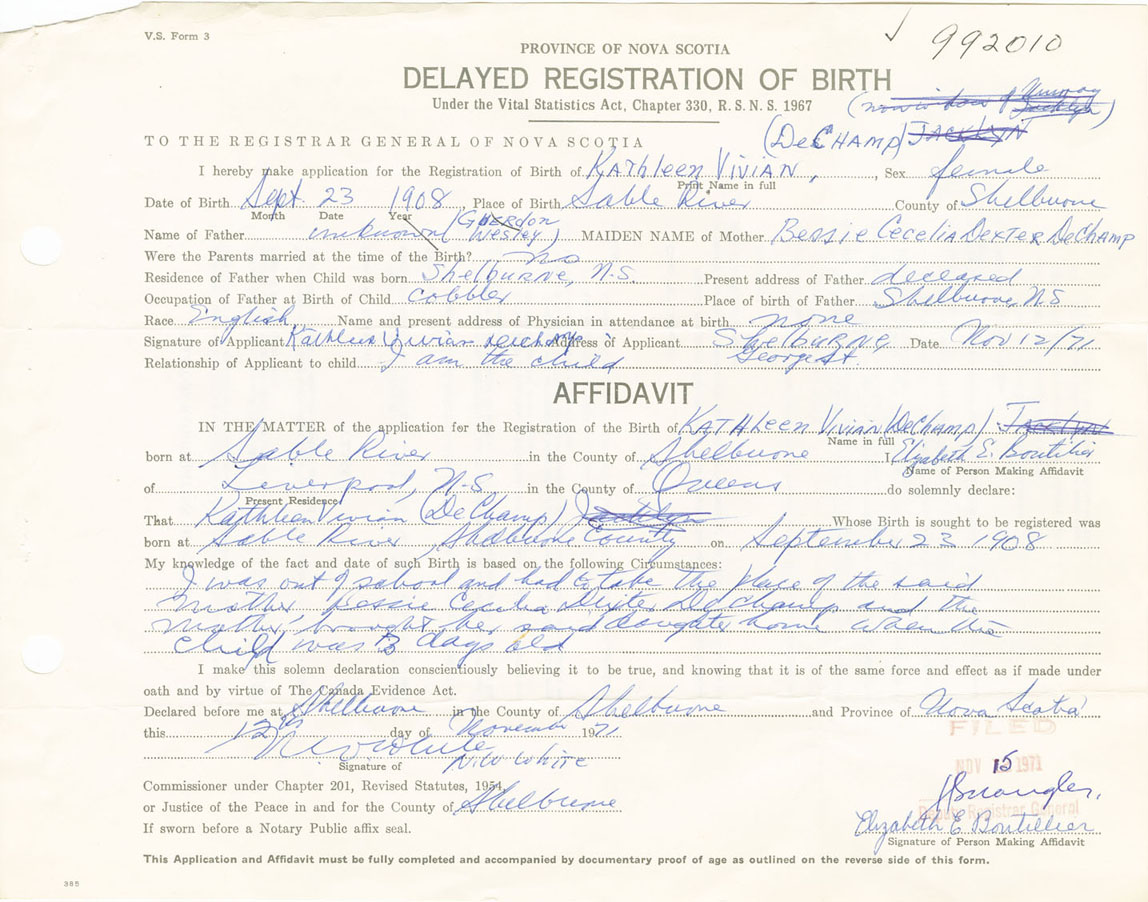 V.S. Form 3
992010
PROVINCE OF NOVA SCOTIA
DELAYED REGISTRATION OF BIRTH
Under the Vital Statistics Act, Chapter 330, R.S.N.S. 1967
(now is of Murray Jacklyn)
TO THE REGISTRAR GENERAL OF NOVA SCOTIA (DeCHAMP) JACKLYN
I hereby make application for the Registration of Birth of KAthleen VIVIAN, Sex female
Print Name in full
Date of Birth Sept. 23 1908, Place of Birth Sable River County of Shelburne
Month Date Year
Name of Father unknown (Wesley) MAIDEN NAME of Mother Bessie Cecelia Dexter DeChamp
Were the Parents married at the time of the Birth? no
Residence of Father when Child was born Shelburne, N.S. Present address of Father deceased
Occupation of Father at Birth of Child cobbler Place of birth of Father Shelburne, NS
Race English Name and present address of Physician in attendance at birth none
Signature of Applicant Kathleen Vivian Address of Applicant Shelburne Date Nov 12/71
Relationship of Applicant to child I am the child George St.
AFFIDAVIT
IN THE MATTER of the application for the Registration of the Birth of KATHLEEN Vivian (DeChamp) Jacklyn
Name in full
born at Sable River in the County of Shelburne I, Elizabeth E. Boutilier
Name of Person Making Affidavit
of Liverpool, N.S. in the County of Queens do solemnly declare:
Present Residence
That Kathleen Vivian (DeChamp) Jacklyn Whose Birth is sought to be registered was
born at Sable River, Shelburne County on September 23 1908
My knowledge of the fact and date of such Birth is based on the following Circumstances:
I was out of school and had to take the place of the said
mother Bessie Cecelia Dexter DeChamp and the
mother brought her said daughter home when the
child was 3 days old
I make this solemn declaration conscientiously believing it to be true, and knowing that it is of the same force and effect as if made under
oath and by virtue of The Canada Evidence Act.
Declared before me at Shelburne in the County of Shelburne and Province of Nova Scotia
this 12th day of November 1971
FILED
NOV 15 1971
Deputy Registrar General
N W White
Signature of N.W. White
Commissioner under Chapter 201, Revised Statutes, 1954,
or Justice of the Peace in and for the County of Shelburne
Elizabeth E Boutilier
If sworn before a Notary Public affix seal.
Signature of Person Making Affidavit
This Application and Affidavit must be fully completed and accompanied by documentary proof of age as outlined on the reverse side of this form.
385